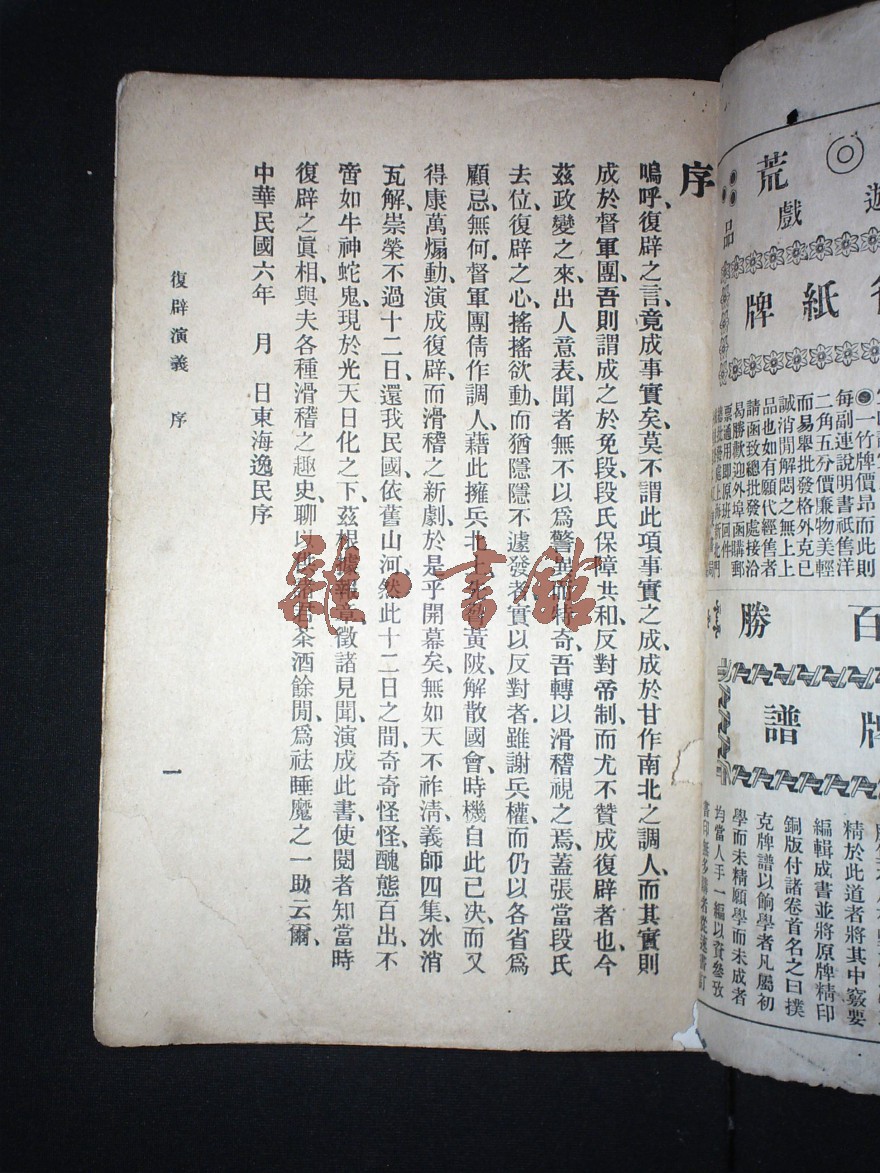 序
嗚呼、復辟之言、竟成事實矣、莫不謂此項事實之成、成於甘作南北之調人、而其實則
成於督軍團、吾則謂成之於免段、段氏保障共和、反對帝制、而尤不贊成復辟者也、今
茲政變之來、出人意表、聞者無不以爲警異而特奇、吾轉以滑稽視之焉、蓋張當段氏
去位、復辟之心、搖搖欲動、而猶隱隱不遽發者、實以反對者雖謝兵權、而仍以各省爲
顧忌、無何督軍團倩作調人、藉此擁兵北上、黃陂解散國會、時機自此已決、而又
得康萬煽動、演成復辟、而滑稽之新劇、於是乎開幕矣、無如天不祚淸、義師四集、冰消
瓦解、崇榮不過十二日、還我民國、依舊山河、然此十二日之間、奇奇怪怪、醜態百出、不
啻如牛神蛇鬼、現於光天日化之下、茲根據報章、徵諸見聞、演成此書、使閱者知當時
復辟之眞相、與夫各種滑稽之趣史、聊以茶酒餘閒、爲祛睡魔之一助云爾、
中華民國六年 月 日東海逸民序
復辟演義 序
一
雜·書館
荒
遊戲品
紙牌
一竹牌價昂而此則
每副連說明書祇售洋
二角五分價廉物美輕
而易舉批發格外克已
誠消閒解悶之無上上
品也如有願代經售者
請函致總批發處接洽
曷勝歡迎外埠函購郵
票通用即原班回件
百勝
牌譜
精於此道者將其中竅要
編輯成書並將原牌精印
銅版付諸卷首名之曰撲
克牌譜以餉學者凡屬初
學而未精願學而未成者
均當人手一編以資參攷